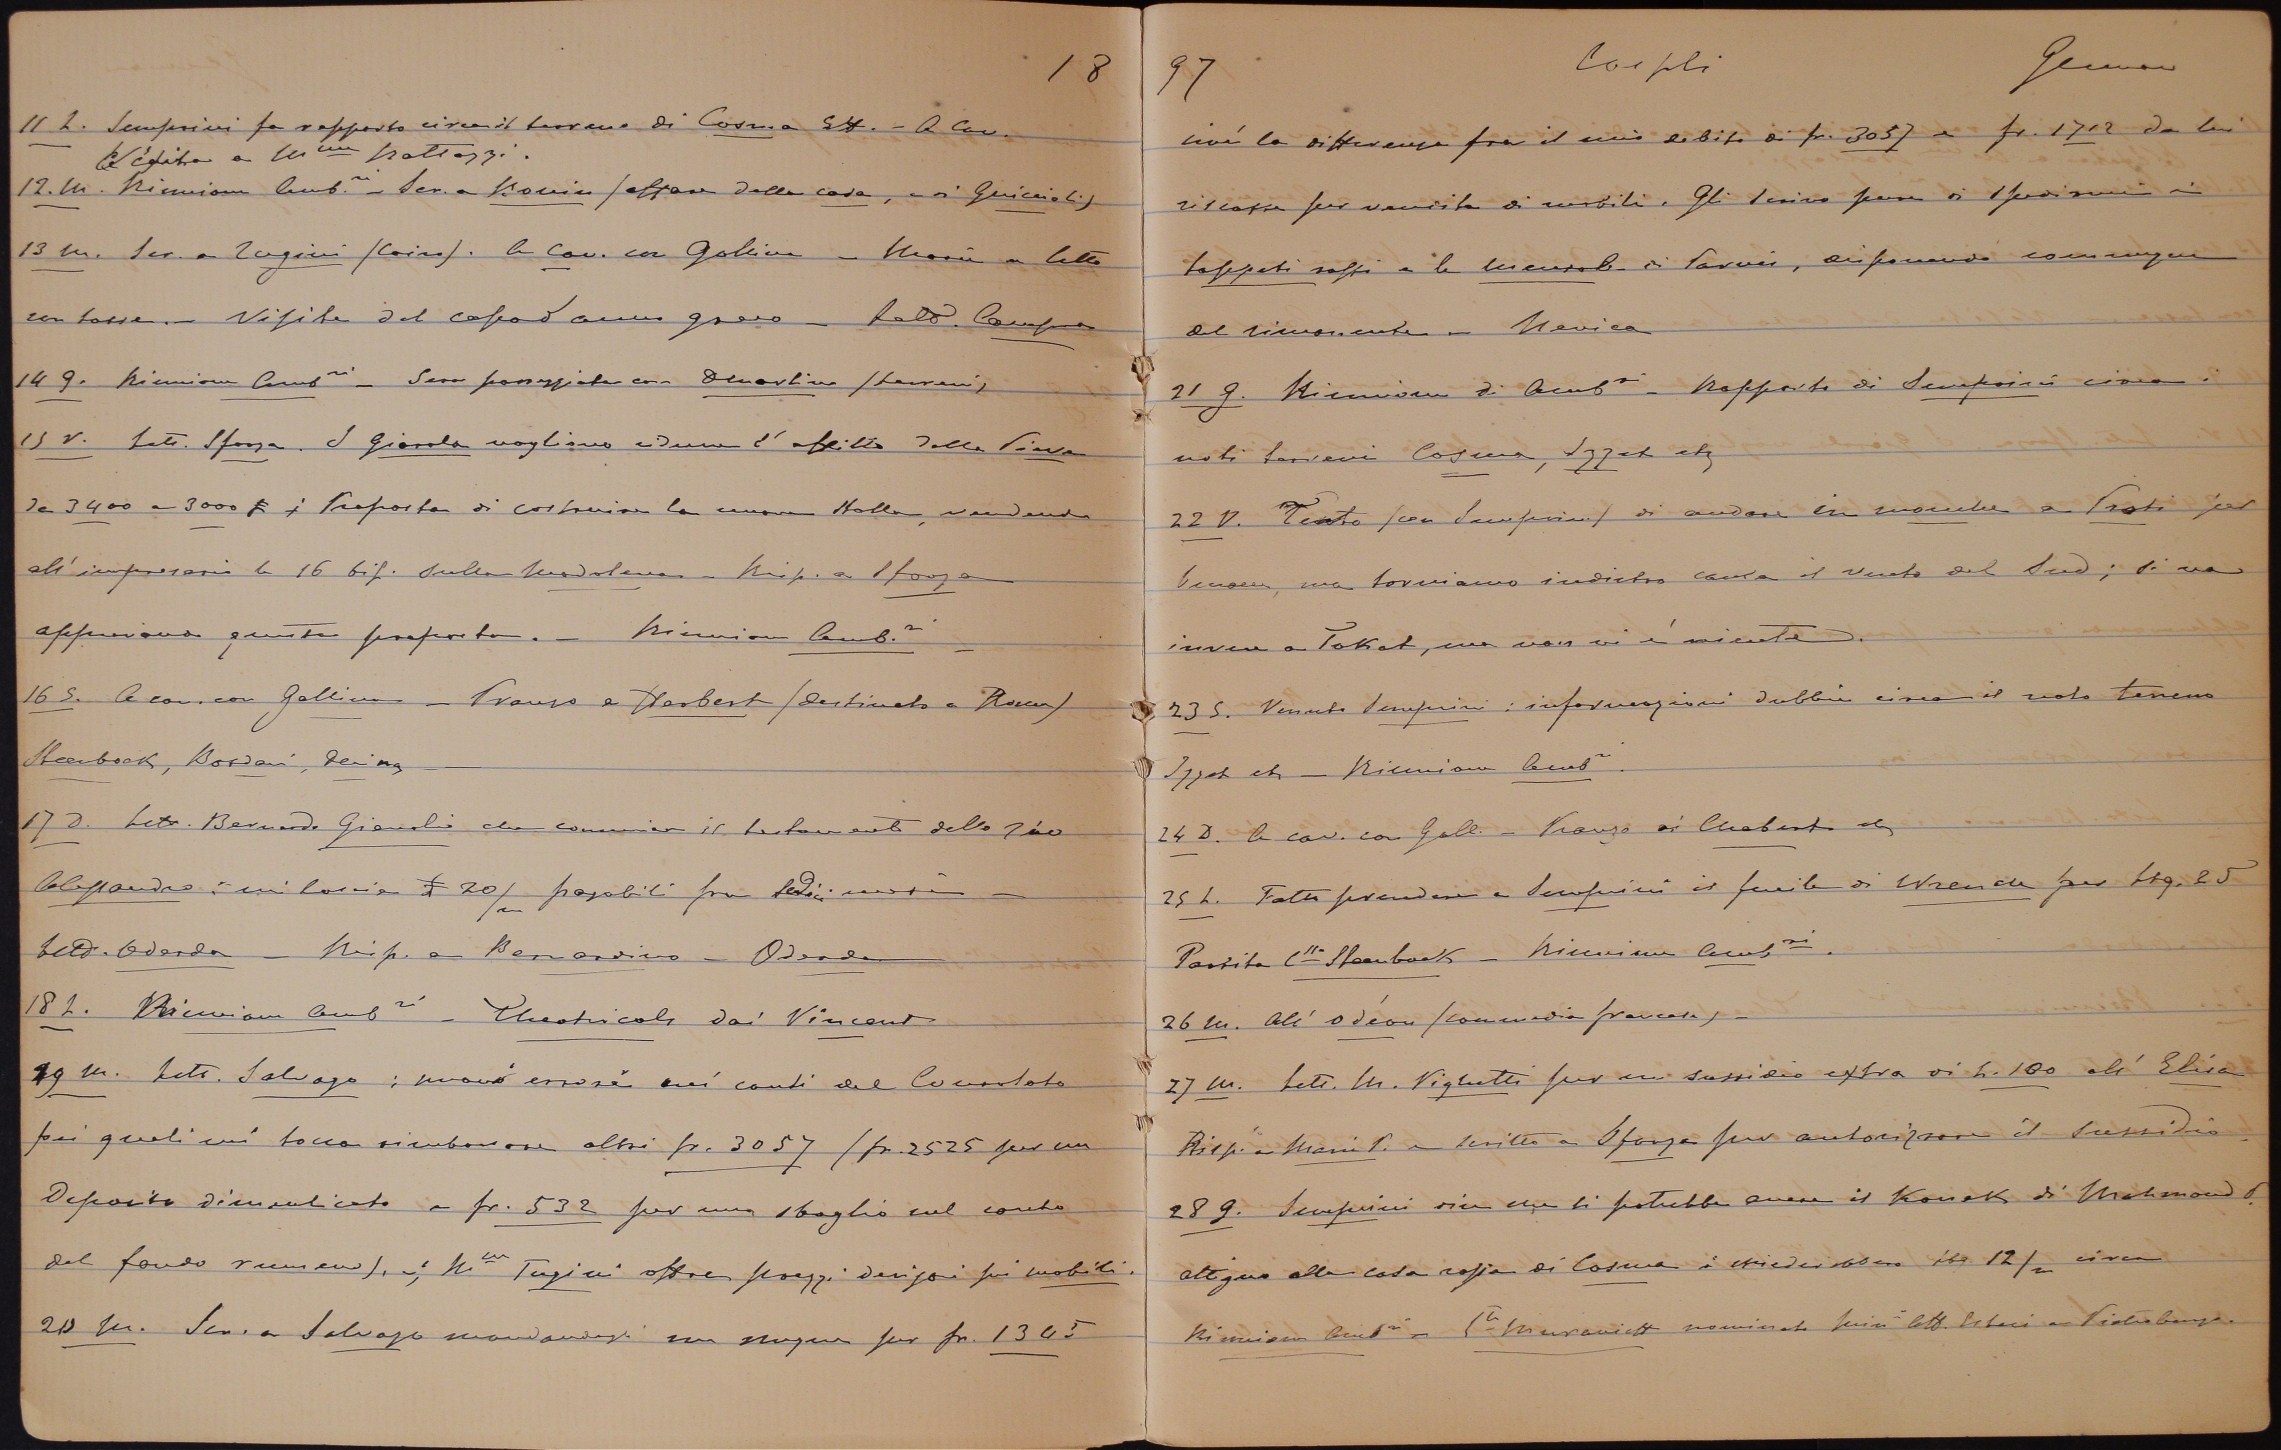 18
11 L. Semprini fa rapporto circa il terreno di Cosma Eff. - A cav.
Visita a M.me Rattazzi.
12. M. Riunione Amb.ri - Scr. a (affare della casa, e di
13 M. Scr. a Tugini (Cairo). A cav. con Gallina - Maria a letto
con tosse. - Visite del capo d'anno greco -
14 G. Riunione Amb.ri - Sera passeggiata con Demartino (terreni)
15 V. Lett. Sforza. I vogliono ridurre l'affitto della Pieve
da 3400 a 3000 ₤; Proposta di costruire la nuova stalla, vendendo
all'impresario le 16 big. sulla Madalena - Risp. a Sforza
approvando questa proposta. - Riunione Amb.ri -
16 S. A cav. con Gallina - Pranzo a Herbert (destinato a Roma)
Steenbock, Bosdari,
17 D. Lett. Bernardo che comunica il testamento dello zio
Alessandro: mi lascia ₤ 20/m pagabili fra sedici mesi -
Lett. Oderda - Risp. a Bernardino - Oderda
18 L. Riunione Amb.ri - Theatricals dai Vincent
19 M. Lett. Salvago: nuovi errori nei conti del Consolato
pei quali mi tocca rimborsare altri fr. 3057 (fr. 2525 per un
Deposito dimenticato e fr. 532 per uno sbaglio nel conto
del fondo rumeno). M.me Tugini offre prezzi derisori pei mobili.
20 M. Scr. a Salvago mandandogli un per fr. 1345
97 Cospli Gennaio
cioè la differenza fra il mio debito di fr. 3057 e fr. 1712 da lui
riscossi per vendita di mobili. Gli scrivo pure di spedirmi i
tappeti rossi e le mensole di Parvis, disponendo comunque
del rimanente - Nevica
21 G. Riunione di Amb.ri - Rapporto di Semprini circa i
noti terreni Cosma, Izzet etc
22 V. Tento (con Semprini) di andare in mouche a Prati per
ma torniamo indietro causa il vento del Sud; si va
invece a Tokat, ma non vi è niente.
23 S. Venuto Semprini: informazioni dubbie circa il noto terreno
Izzet etc - Riunione Amb.ri.
24 D. A cav. con Gall. - Pranzo di Chabert etc
25 L. Fatto prendere a Semprini il fucile di Wrench per Ltq. 25
Partita C.ssa Steenbock - Riunione Amb.ri.
26 M. All'Odéon (commedia francese) -
27 M. Lett. M. Vighetti per un sussidio extra di L. 100 all'Elisa
Risp. a Maria V. e scritto a Sforza per autorizzare il sussidio.
28 G. Semprini dice che si potrebbe avere il Konak di Mahmoud P.
attiguo alla casa rossa di Cosma: chiederebbero ltq 12/m circa
Riunione Amb.ri - C.te Muravieff nominato min.o Aff. Esteri a Pietroburgo.